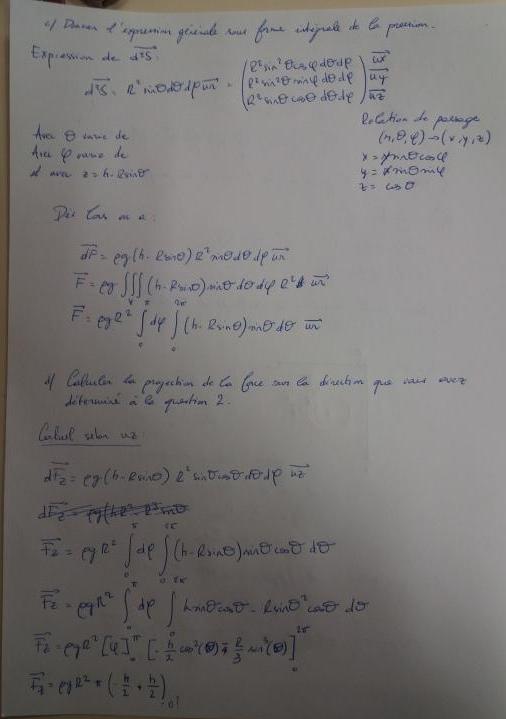 c) Donner l'expression générale sous forme intégrale de la pression.
Expression de d²S:
d²S = R² sinθ dθ dφ ur = (R² sin²θ cosφ dθ dφ) ux
(R² sin²θ sinφ dθ dφ) uy
(R² sinθ cosθ dθ dφ) uz
Relation de passage
(r, θ, φ) → (x, y, z)
x = sinθ cosφ
y = sinθ sinφ
z = cosθ
Avec θ varie de
Avec φ varie de
et avec z = h - R sinθ
Dès lors on a:
dF = ρg (h - R sinθ) R² sinθ dθ dφ ur
F = ρg ∫∫∫ (h - R sinθ) sinθ dθ dφ R² ur
F = ρg R² ∫₀^π dφ ∫₀^2π (h - R sinθ) sinθ dθ ur
d) Calculer la projection de la force sur la direction que vous avez
déterminé à la question 2.
Calcul selon uz:
dFz = ρg (h - R sinθ) R² sinθ cosθ dθ dφ uz
Fz = ρg R² ∫₀^π dφ ∫₀^2π (h - R sinθ) sinθ cosθ dθ
Fz = ρg R² ∫₀^π dφ ∫₀^2π h sinθ cosθ - R sinθ² cosθ dθ
Fz = ρg R² [φ]₀^π [- h/2 cos²(θ) R/3 sin³(θ)]₀^2π
Fz = ρg R² π (- h/2 + h/2)